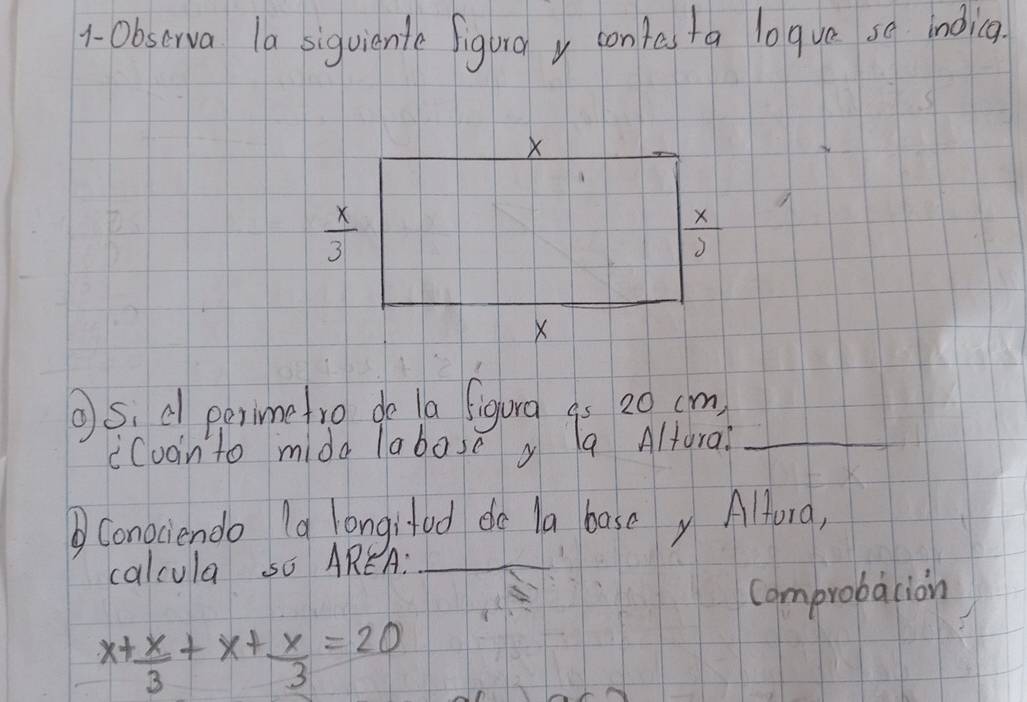 1-Observa la siguiente figura y contesta loque se indica.
x
x/3
x/3
x
a) Si el perimetro de la figura es 20 cm,
¿Cuánto mide labase y la Altura: ______
b) Conociendo la longitud de la base y Altura,
calcula su AREA: ______
Comprobación
x+x/3 + x + x/3 = 20